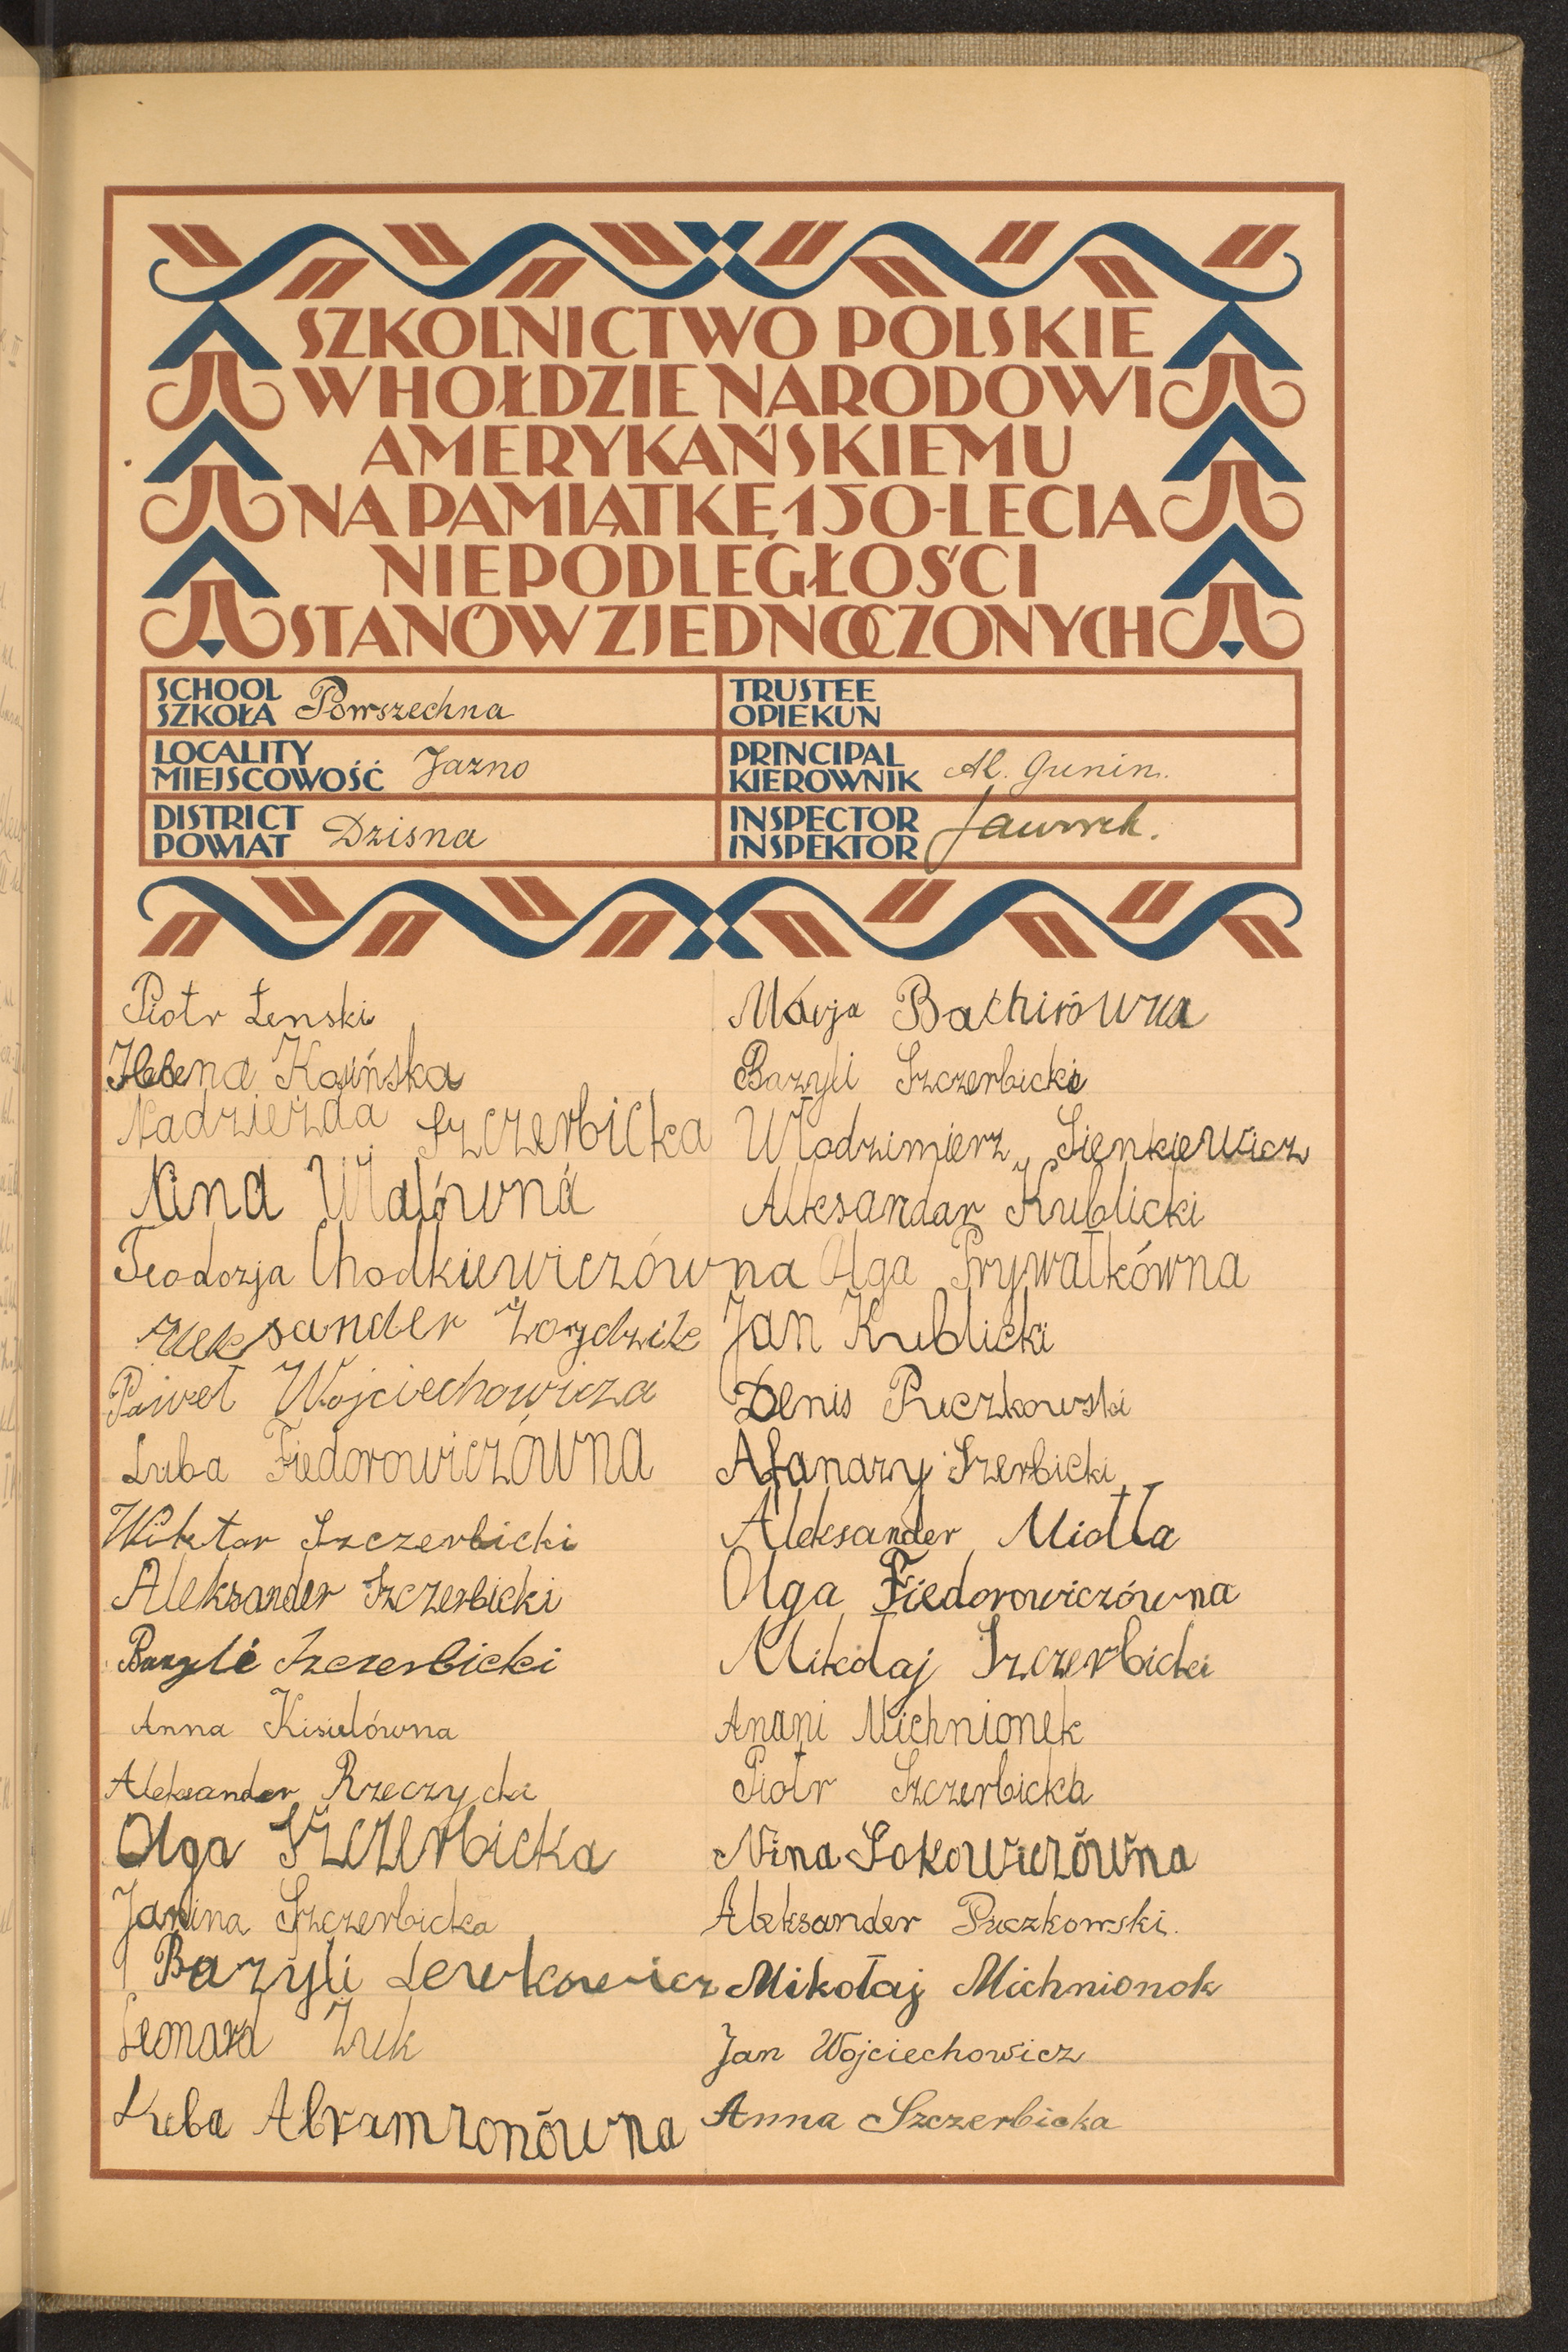 SZKOLNICTWO POLSKIE
W HOŁDZIE NARODOWI
AMERYKAŃSKIEMU
NA PAMIĄTKĘ 150-LECIA
NIEPODLEGŁOŚCI
STANÓW ZJEDNOCZONYCH
SCHOOL
SZKOŁA Powszechna
TRUSTEE
OPIEKUN
LOCALITY
MIEJSCOWOŚĆ Jazno
PRINCIPAL
KIEROWNIK Al. Gunin.
DISTRICT
POWIAT Dzisna
INSPECTOR
INSPEKTOR
Piotr Łenski
Helena
Nadzieżda Szczerbicka
Nina
Teodozja Chodkiewiczówna
Aleksander
Paweł Wojciechowicza
Luba Fiedorowiczówna
Wiktor Szczerbicki
Aleksander Szczerbicki
Bazyli Szczerbicki
Anna Kisielówna
Aleksander Rzeczycka
Olga Szczerbicka
Janina Szczerbicka
Bazyli Lewkowicz
Leonard Żuk
Luba Abramzonówna
Marja Bachirówna
Bazyli Szczerbicki
Włodzimierz Sienkiewicz
Aleksandar Kublicki
Olga Prywałkówna
Jan Kublicki
Denis Puczkowski
Afanazy Szerbicki
Aleksander Miotła
Olga Fiedorowiczówna
Mikołaj Szczerbicki
Anani Michnionek
Piotr Szczerbicka
Nina Sokowiczówna
Aleksander Puczkowski.
Mikołaj Michnionok
Jan Wojciechowicz
Anna Szczerbicka